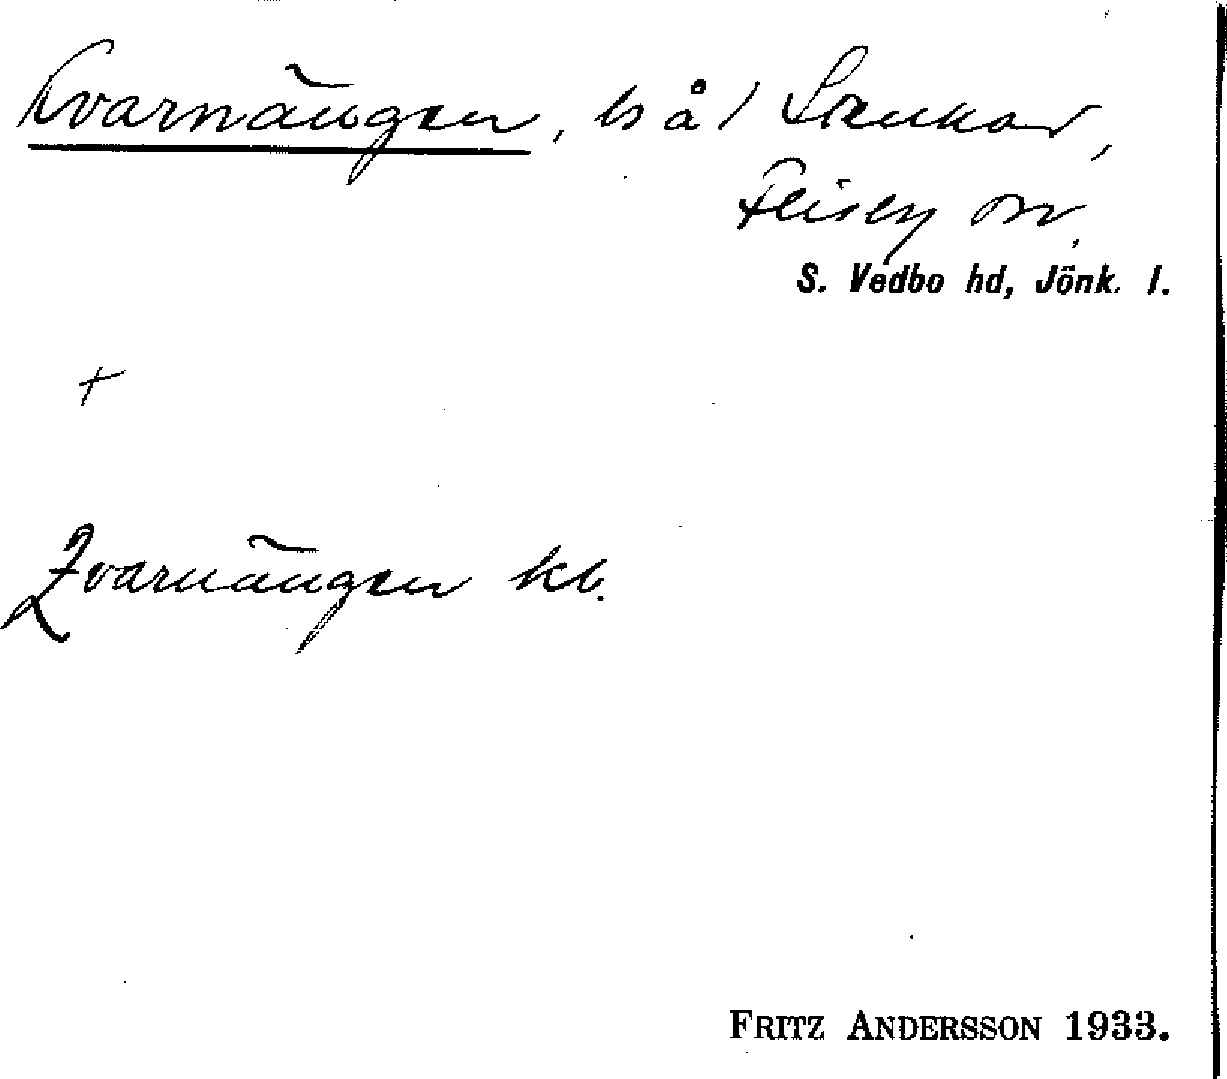 Kvarnängen, ls å /
Flisby sn.
S. Vedbo hd, Jönk. l.
+
Kvarnängen kl.
FRITZ ANDERSSON 1933.